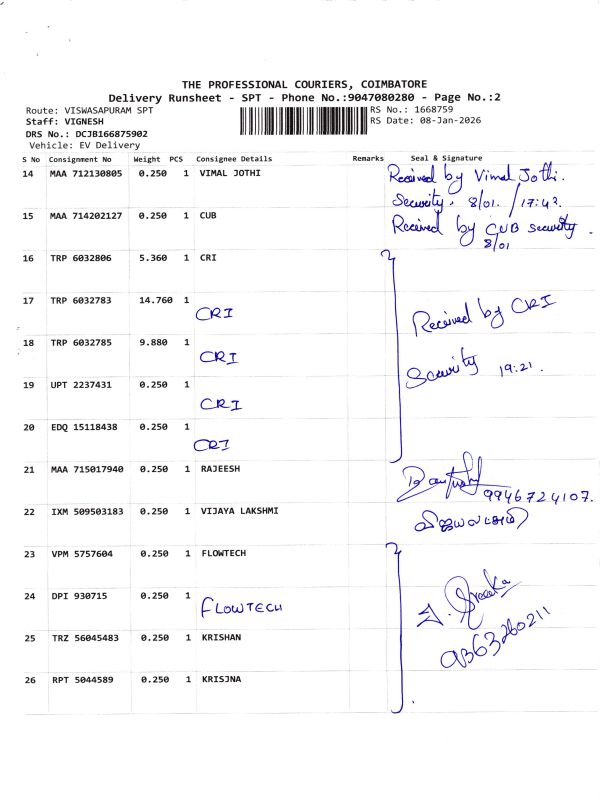 THE PROFESSIONAL COURIERS, COIMBATORE
Delivery Runsheet - SPT - Phone No.:9047080280 - Page No.:2
Route: VISWASAPURAM SPT
RS No.: 1668759
Staff: VIGNESH
RS Date: 08-Jan-2026
DRS No.: DCJB166875902
Vehicle: EV Delivery
S No Consignment No Weight PCS Consignee Details Remarks Seal & Signature
14 MAA 712130805 0.250 1 VIMAL JOTHI Received by Vimal Jothi.
Security. 8/01. / 17:43.
15 MAA 714202127 0.250 1 CUB Received by CUB security.
8/01
16 TRP 6032806 5.360 1 CRI
17 TRP 6032783 14.760 1 CRI Received by CRI
18 TRP 6032785 9.880 1 CRI Security 19:21.
19 UPT 2237431 0.250 1 CRI
20 EDQ 15118438 0.250 1 CRI
21 MAA 715017940 0.250 1 RAJEESH 9946724107.
22 IXM 509503183 0.250 1 VIJAYA LAKSHMI
23 VPM 5757604 0.250 1 FLOWTECH
24 DPI 930715 0.250 1 FLOWTECH
25 TRZ 56045483 0.250 1 KRISHAN 9363260211
26 RPT 5044589 0.250 1 KRISJNA